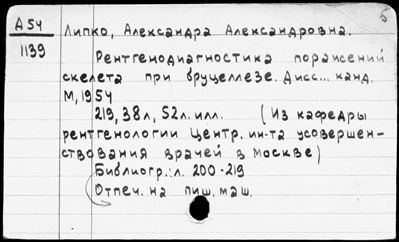 5
А54
1139
Липко, Александра Александровна.
Рентгенодиагностика поражений
скелета при бруцеллезе. Дисс... канд.
М, 1954
219, 38л, 52л. илл. (Из кафедры
рентгенологии Центр. ин-та усовершен-
ствования врачей в Москве)
Библиогр.: л. 200-219
Отпеч. на пиш. маш.